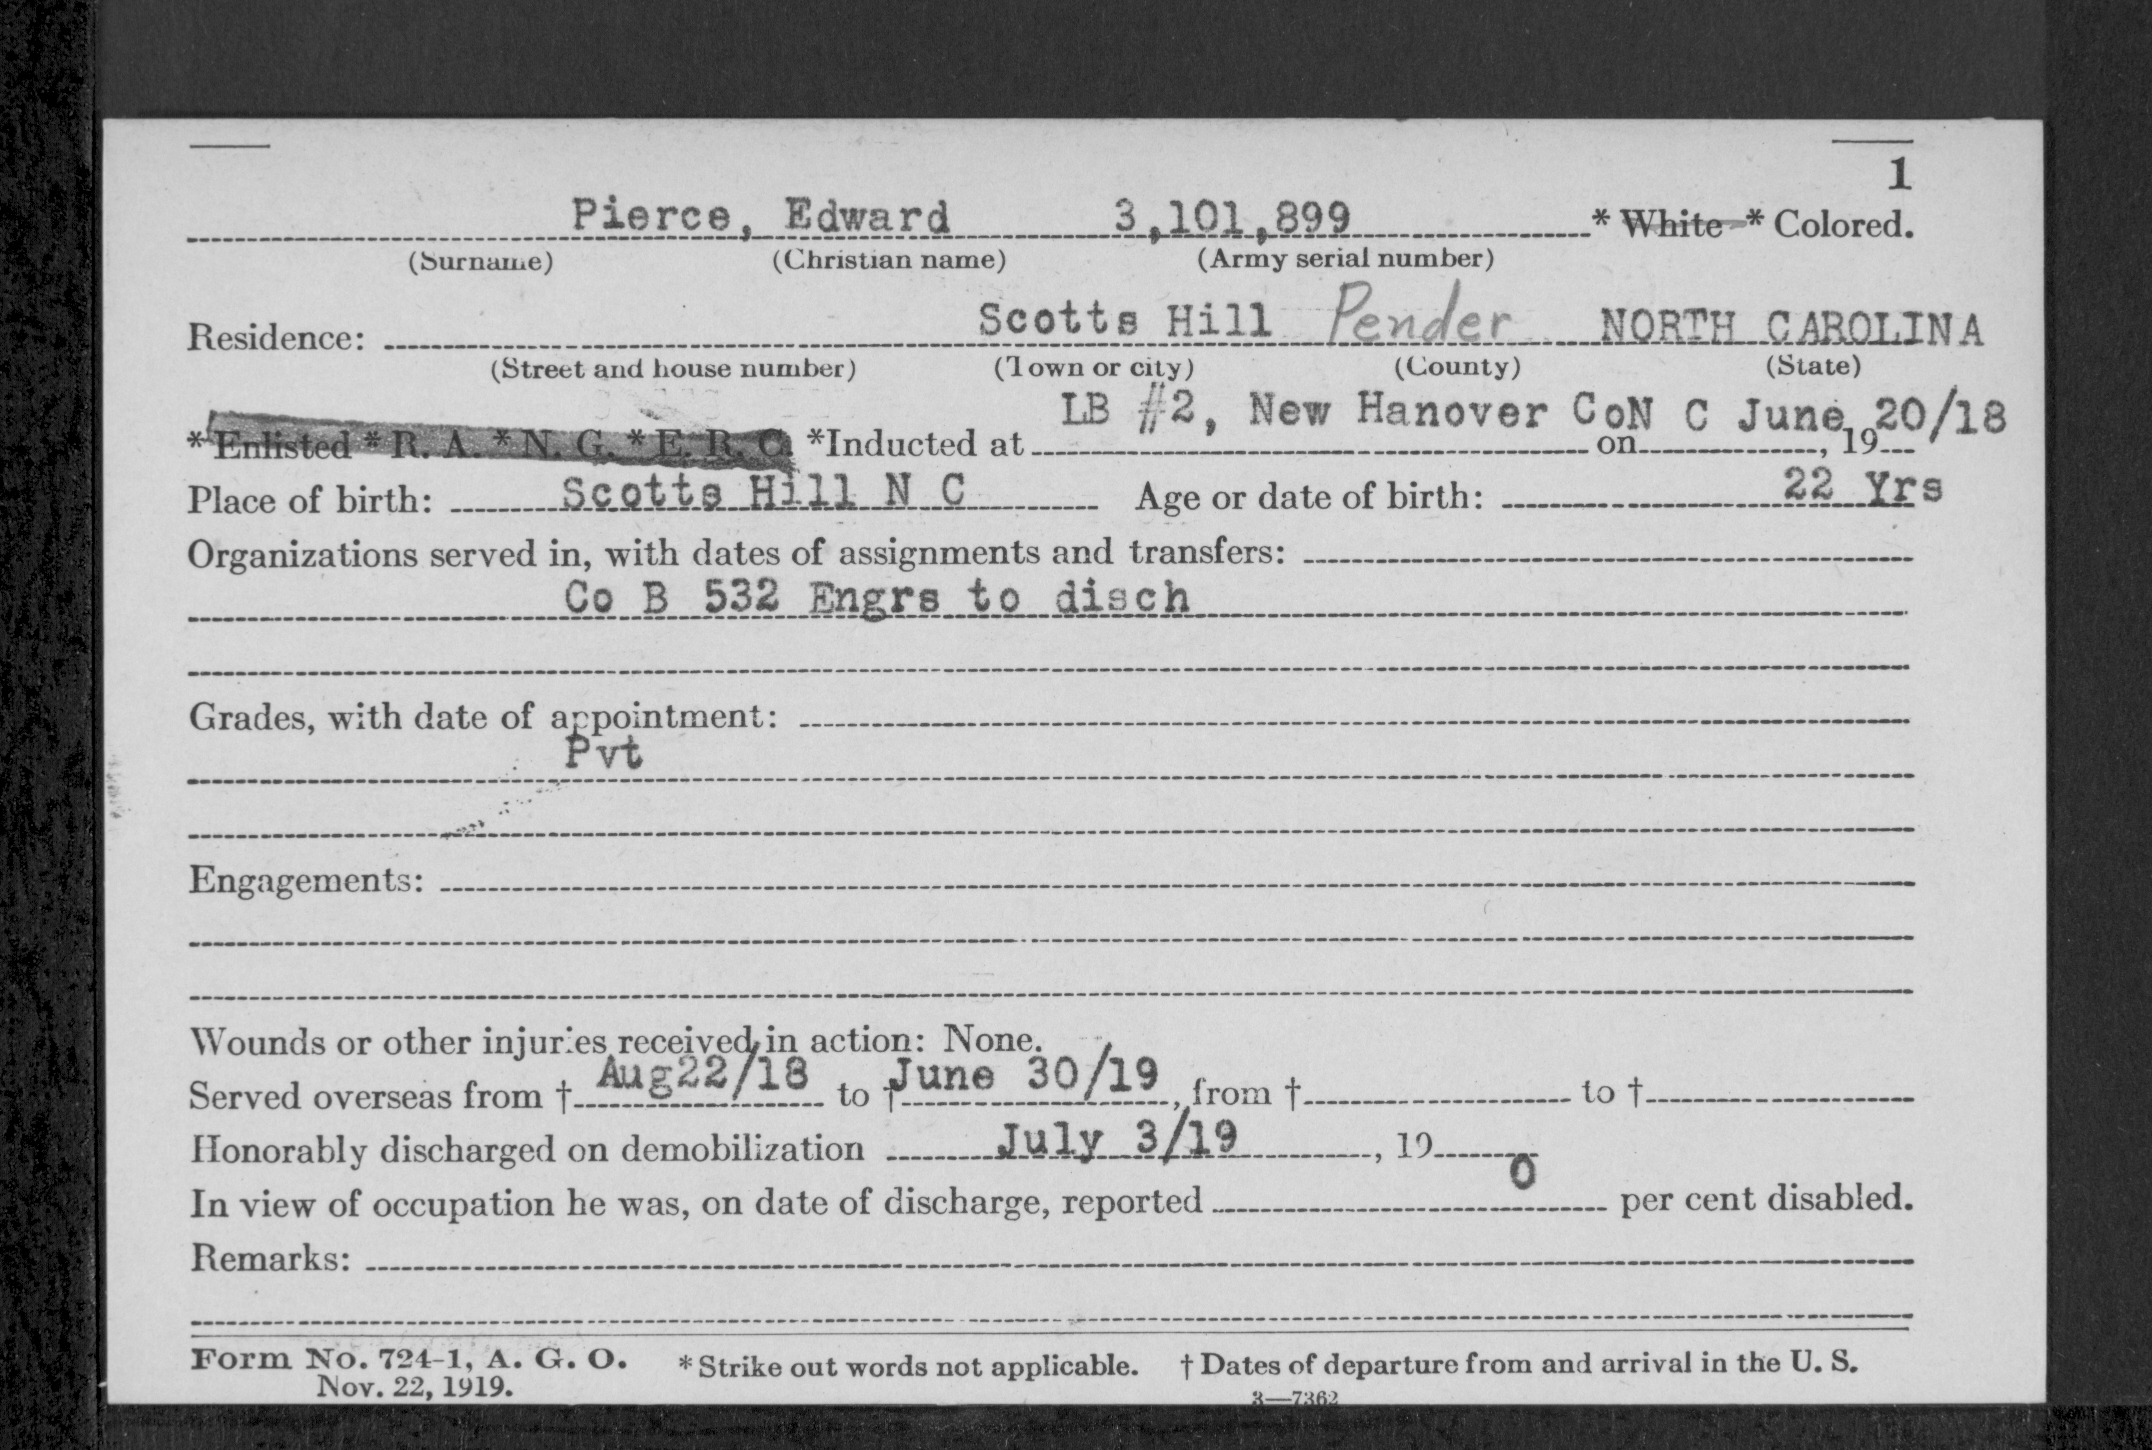 1
Pierce, Edward 3,101,899 * White * Colored.
(Surname) (Christian name) (Army serial number)
Residence: Scotts Hill Pender NORTH CAROLINA
(Street and house number) (Town or city) (County) (State)
LB #2, New Hanover CoN C June 20/18
* Enlisted * R. A. * N. G. * E. R. C. *Inducted at on , 19
Place of birth: Scotts Hill N C Age or date of birth: 22 Yrs
Organizations served in, with dates of assignments and transfers:
Co B 532 Engrs to disch
Grades, with date of appointment:
Pvt
Engagements:
Wounds or other injuries received in action: None.
Served overseas from † Aug22/18 to † June 30/19, from † to †
Honorably discharged on demobilization July 3/19, 19
In view of occupation he was, on date of discharge, reported 0 per cent disabled.
Remarks:
Form No. 724-1, A. G. O. * Strike out words not applicable. † Dates of departure from and arrival in the U. S.
Nov. 22, 1919. 3—7362